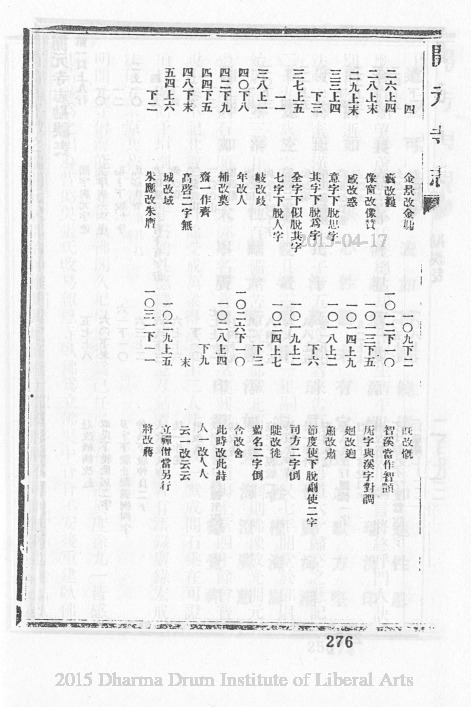 開元寺志
四 金景改金
二六上四
二八上末 像窗改像
二九上末 改惑
三三上四 意字下脫思字
下三 其字下脫爲字
三七上五 全字下似脫其字
一一 七字下脫人字
三八上一 岐改歧
四〇下八 年改人
四二下九 補改奠
四四下五 齋一作齊
四八下末 高啓二字無
五四上六 城改域
下二 朱應改朱
一〇九下二 既改慨
一〇一二下一〇 智溪當作智顗
一〇一三下五 所字與溪字對調
一〇一四上九 廻改迥
一〇一八上二 蕭改肅
下六 節度使下脫副使二字
一〇一九上二 司方二字倒
一〇二四上七 陡改徒
下三 藍名二字倒
一〇二六下一〇 含改舍
一〇二八上四 此時改此詩
下九 人一改人人
末 云一改云云
一〇二九上五 立禪僧當另行
一〇三一下一一 將改蔣
2015-04-17
276
2015 Dharma Drum Institute of Liberal Arts